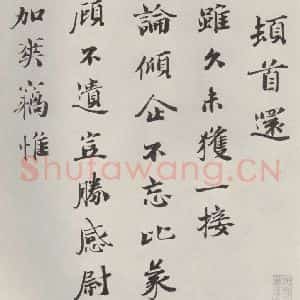 頓首還
雖久未獲一接
論傾企不忘比蒙
顧不遺豈勝感尉
加奕竊惟
Shufawang.CN